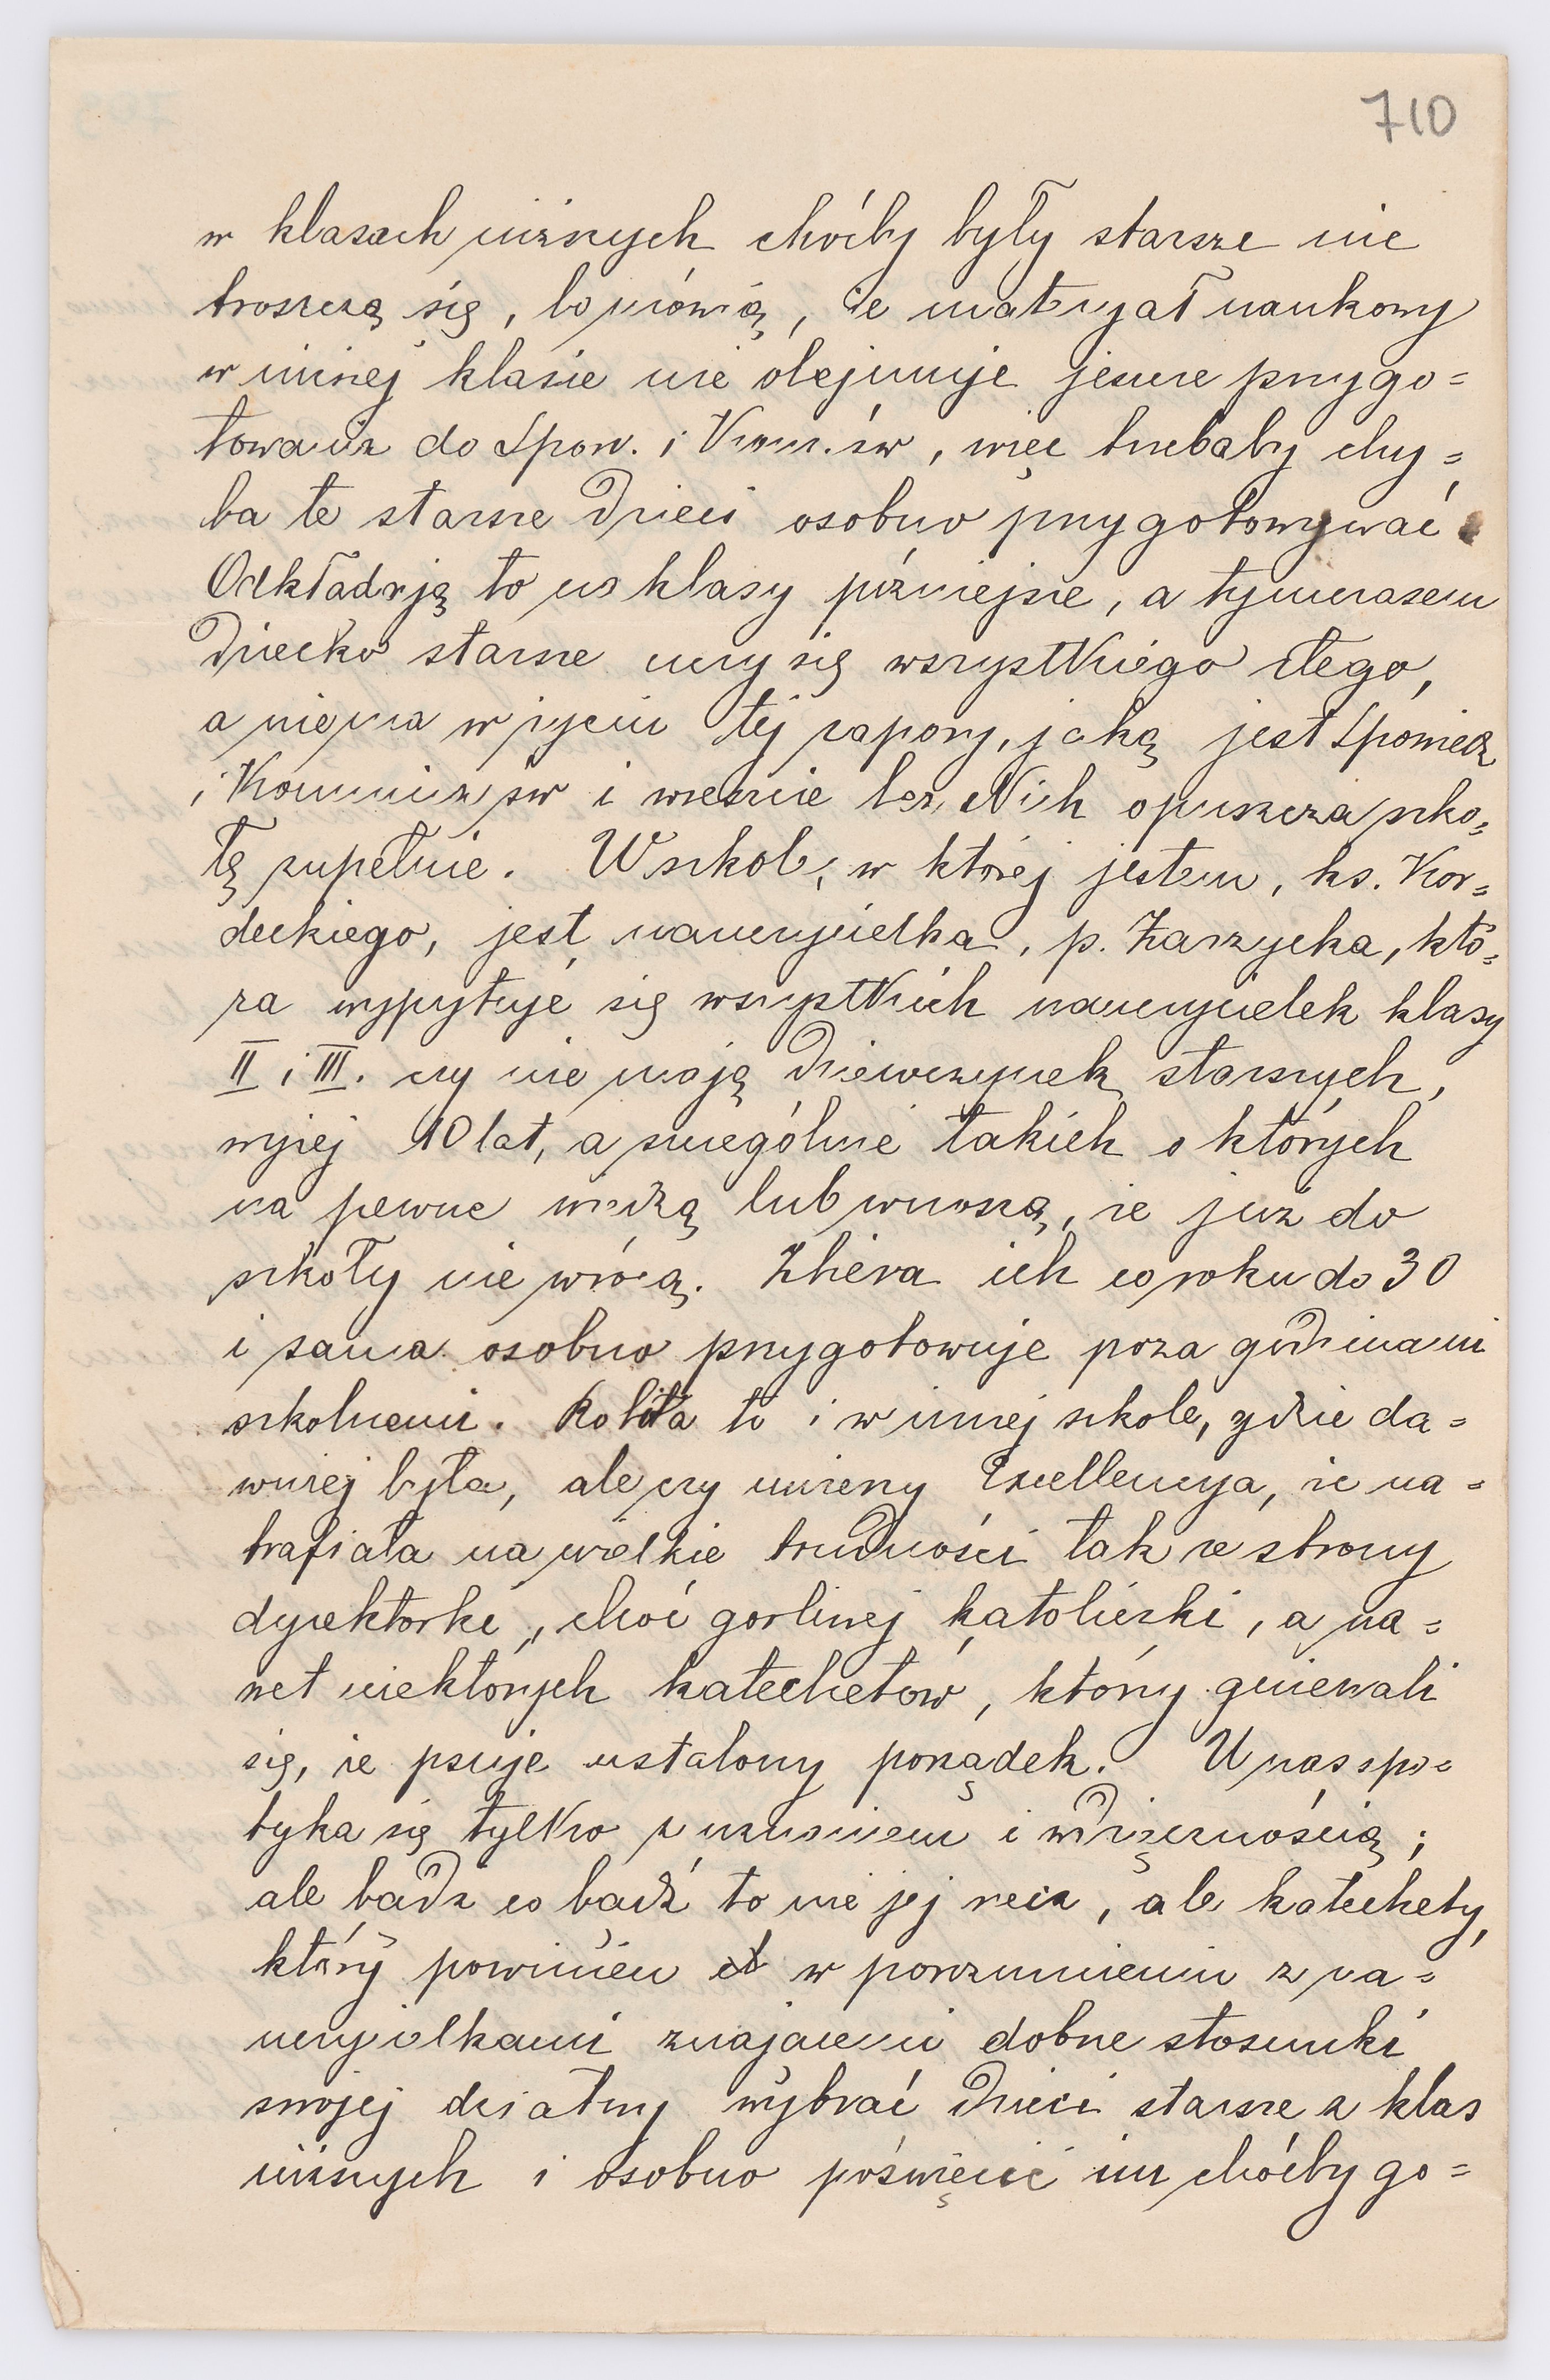 710
w klasach niższych choćby były starsze nie
troszczą się, bo mówią, że materyał naukowy
w niższej klasie nie obejmuje jeszcze przygo=
towania do Spow. i Kom. św, więc trzebaby chy=
ba te starsze dzieci osobno przygotowywać
Odkładają to na klasy późniejsze, a tymczasem
dziecko starsze uczy się wszystkiego złego,
a nie ma w życiu tej zapory, jaką jest Spowiedź
i Komunia św i wreszcie bez Nich opuszcza szko=
łę zupełnie. W szkole, w której jestem, ks. Kor=
deckiego, jest nauczycielka, p. Zarzycka, któ=
ra wypytuje się wszystkich nauczycielek klasy
II i III. czy nie mają dziewczynek starszych,
wyżej 10 lat, a szczególnie takich o których
na pewne wiedzą lub wnoszą, że już do
szkoły nie wrócą. Zbiera ich co roku do 30
i sama osobno przygotowuje poza godzinami
szkolnemi. Robiła to i w innej szkole, gdzie da=
wniej była, ale czy uwierzy Excellencya, że na=
trafiała na wielkie trudności tak ze strony
dyrektorki, choć gorliwej katoliczki, a na=
wet niektórych katechetów, którzy gniewali
się, że psuje ustalony porządek. U nas spo=
tyka się tylko z uznaniem i wdzięcznością;
ale bądź co bądź to nie jej rzecz, ale katechety,
który powinien w porozumieniu z na=
uczycielkami znającemi dobrze stosunki
swojej dziatwy wybrać dzieci starsze z klas
niższych i osobno poświęcić im choćby go=